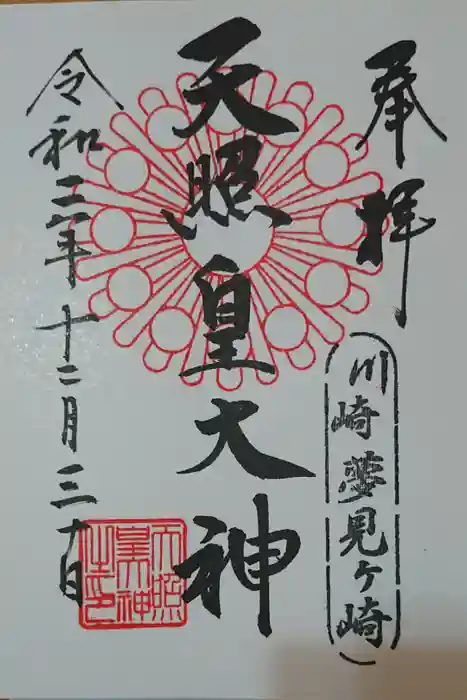 奉拝
(川崎夢見ケ崎)
天照皇大神
令和二年十二月三十日
天照
皇大神
之印